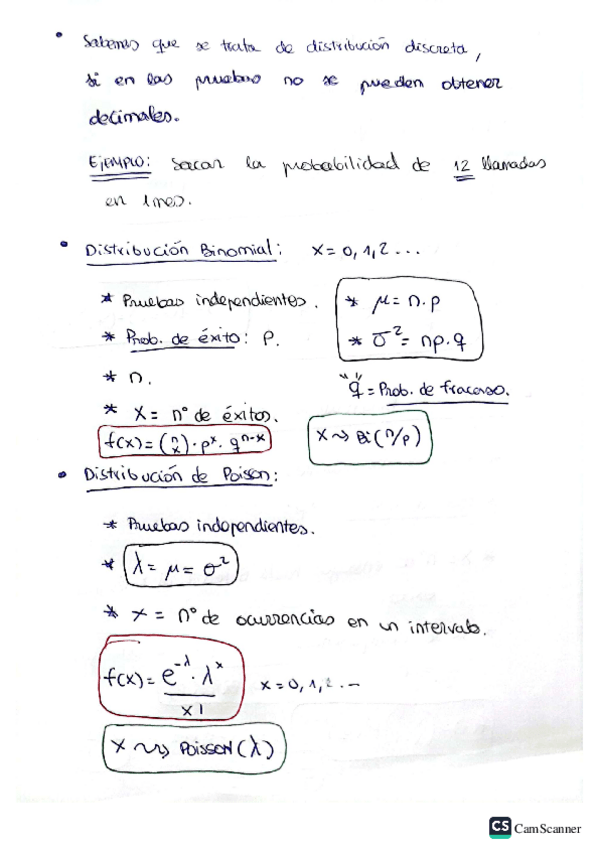 • Sabemos que se trata de distribución discreta,
si en las pruebas no se pueden obtener
decimales.
EJEMPLO: Sacar la probabilidad de 12 llamadas
en 1 mes.
• Distribución Binomial: X = 0, 1, 2 ...
* Pruebas independientes. * μ = n · p
* Prob. de éxito: P. * σ² = np · q
* n. "q" = Prob. de fracaso.
* X = nº de éxitos.
f(x) = (n x) · pˣ · qⁿ⁻ˣ X ~> Bi(n/p)
• Distribución de Poisson:
* Pruebas independientes.
* λ = μ = σ²
* x = nº de ocurrencias en un intervalo.
f(x) = e^-λ · λ^x / x! x = 0, 1, 2 ...
X ~> POISSON(λ)
CS CamScanner